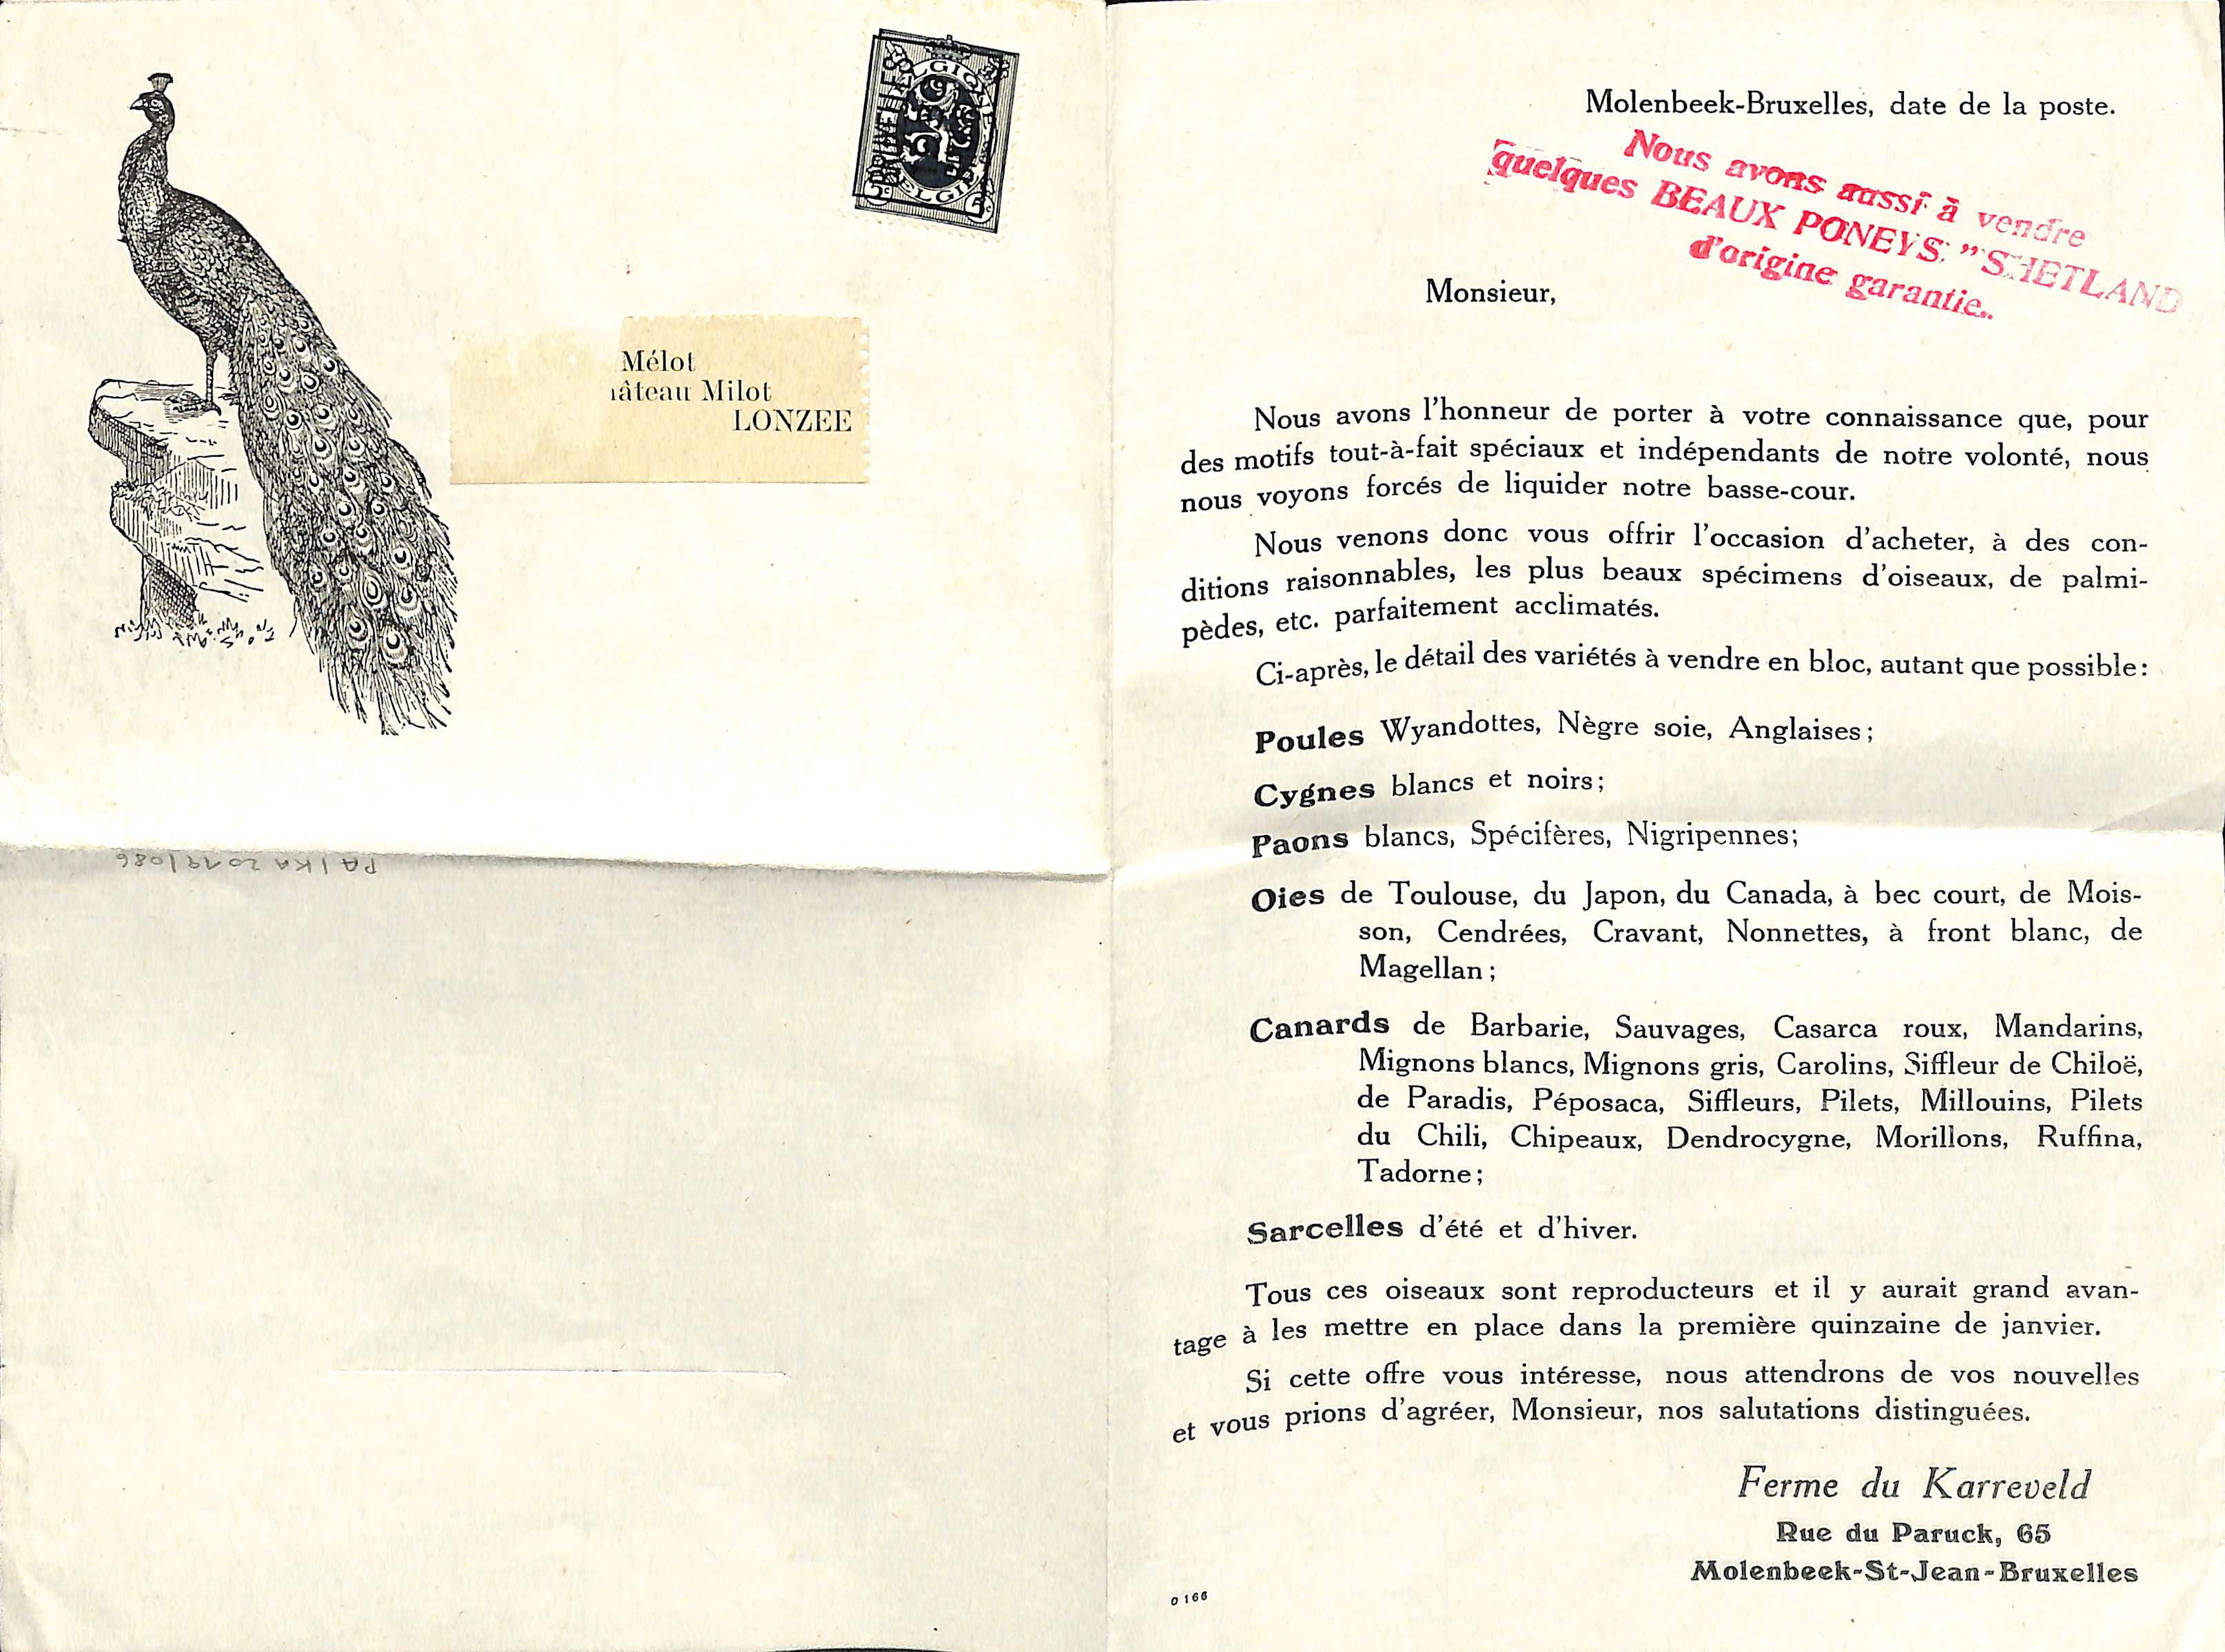 BELGIQUE
BRUXELLES
5c 5c
BELGIË
Mélot
âteau Milot
LONZEE
PA/KA 2019/086
Molenbeek-Bruxelles, date de la poste.
Nous avons aussi à vendre
quelques BEAUX PONEYS "SHETLAND
d'origine garantie..
Monsieur,
Nous avons l'honneur de porter à votre connaissance que, pour
des motifs tout-à-fait spéciaux et indépendants de notre volonté, nous
nous voyons forcés de liquider notre basse-cour.
Nous venons donc vous offrir l'occasion d'acheter, à des con-
ditions raisonnables, les plus beaux spécimens d'oiseaux, de palmi-
pèdes, etc. parfaitement acclimatés.
Ci-après, le détail des variétés à vendre en bloc, autant que possible:
Poules Wyandottes, Nègre soie, Anglaises;
Cygnes blancs et noirs;
Paons blancs, Spécifères, Nigripennes;
Oies de Toulouse, du Japon, du Canada, à bec court, de Mois-
son, Cendrées, Cravant, Nonnettes, à front blanc, de
Magellan;
Canards de Barbarie, Sauvages, Casarca roux, Mandarins,
Mignons blancs, Mignons gris, Carolins, Siffleur de Chiloë,
de Paradis, Péposaca, Siffleurs, Pilets, Millouins, Pilets
du Chili, Chipeaux, Dendrocygne, Morillons, Ruffina,
Tadorne;
Sarcelles d'été et d'hiver.
Tous ces oiseaux sont reproducteurs et il y aurait grand avan-
tage à les mettre en place dans la première quinzaine de janvier.
Si cette offre vous intéresse, nous attendrons de vos nouvelles
et vous prions d'agréer, Monsieur, nos salutations distinguées.
Ferme du Karreveld
Rue du Paruck, 65
Molenbeek-St-Jean-Bruxelles
0 166